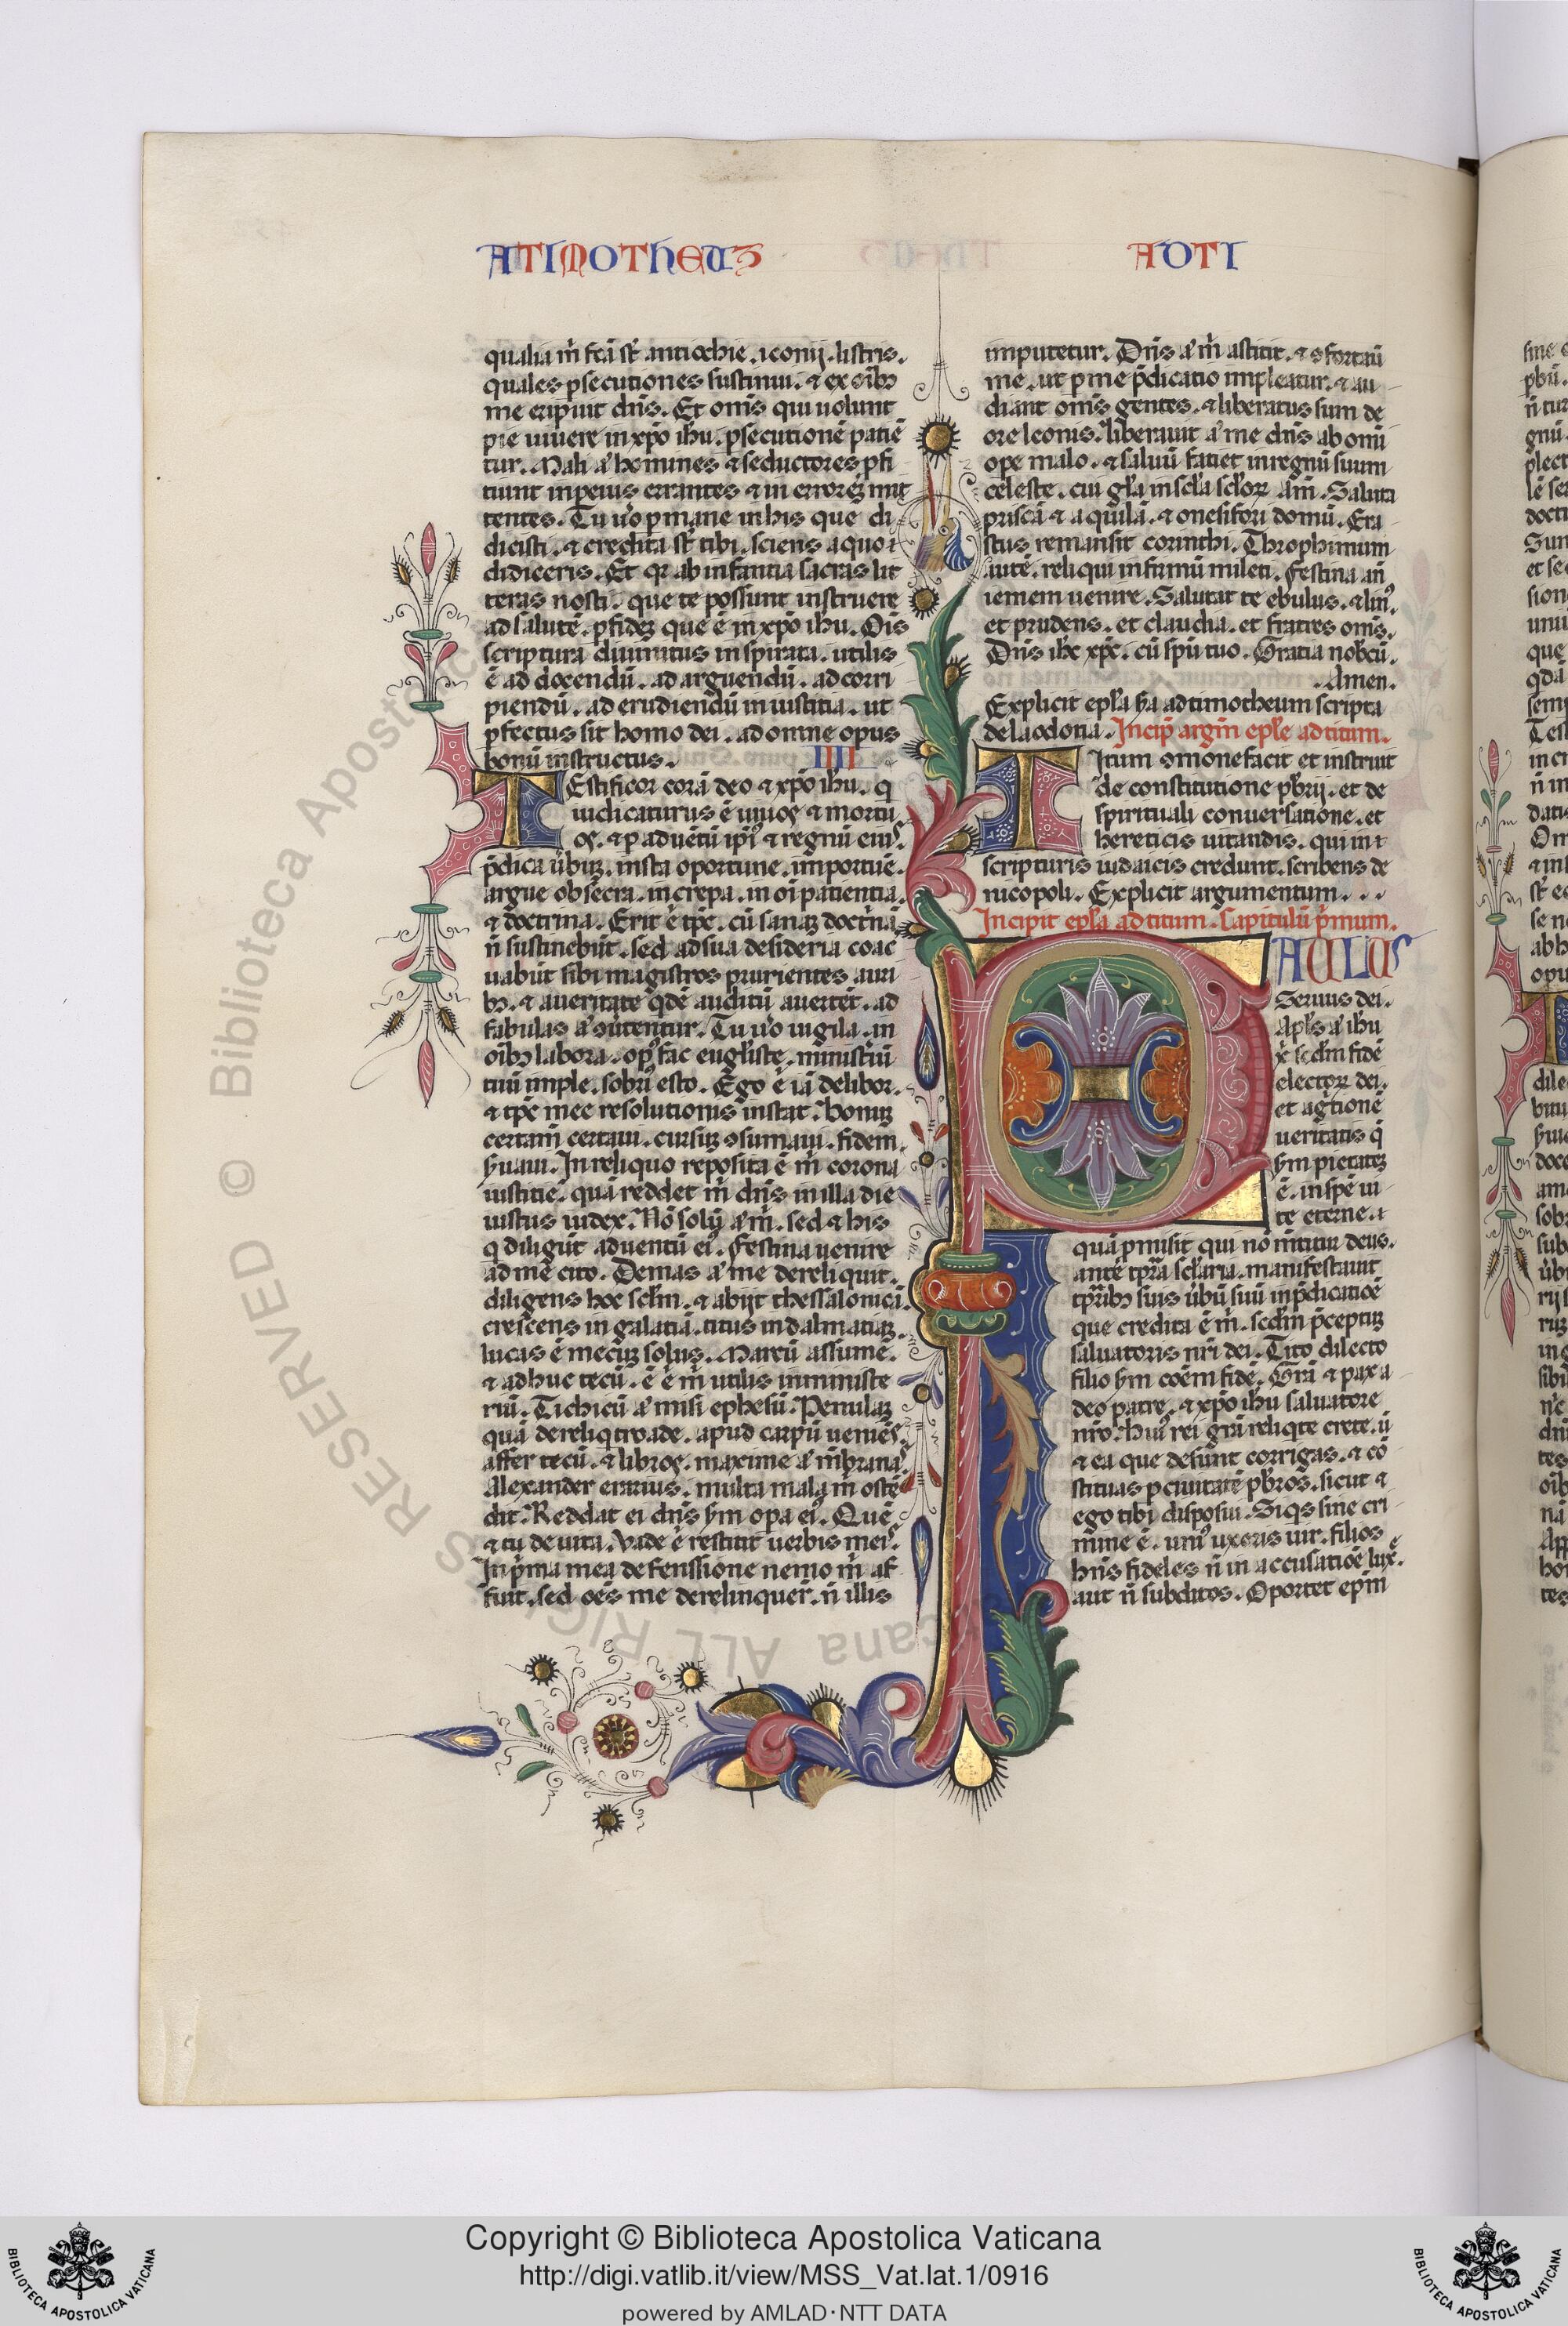 ATIMOTHEUȜ
ADTI
qualia m̄ fcā st̄ antiochie. iconij. listris.
quales ꝑsecutiones sustinui. & ex oībꝫ
me eripuit dn̄s. Et omīs qui uolunt
pie uiuere in xp̄o ih̄u. ꝑsecutionē patiē
tur. Mali aͥ homines & seductores ꝓfi
tiunt in peius errantes & in erroreꝫ mit
tentes. Tu uͦo ꝑmane in his que di
dicisti. & credita st̄ tibi. sciens a quo
didiceris. Et qꝛ ab infantia sacras lit
teras nosti. que te possunt instruere
ad salutē. ꝑ fideꝫ que ē in xp̄o ih̄u. Oīs
scriptura diuinitus inspirata. utilis
ē ad docendū. ad arguendū. ad corri
piendū. ad erudiendū in iustitia. ut
ꝑfectus sit homo dei. ad omne opus
bonū instructus. IIII
TEstificor corā deo & xp̄o ih̄u. q
iudicaturus ē uiuos & mortu
os. & ꝑ aduētū ip̄iꝰ & regnū eiuˢ.
p̄dica ūbuꝫ. insta oportune. importuē.
argue obsecra. increpa. in oī patientia.
& doctrina. Erit .n. tp̄c. cū sanaꝫ doctⁱnā
n̄ sustinebūt. sed ad sua desideria coac
uabūt sibi magistros prurientes auri
bꝫ. & a ueritate qͥdē auditū auertēt. ad
fabulas aͥ ꝯūtentur. Tu uͦo uigila. in
oībꝫ labora. opꝰ fac eugl̄iste. ministiū
tuū imple. sobriꝰ esto. Ego .n. iā delibor.
& tp̄c mee resolutionis instat. Bonuꝫ
certam̄ certaui. cursuꝫ ꝯsumaui. fidem
ẜuaui. In reliquo reposita ē m̄ corona
iustitie. quā reddet m̄ dn̄s in illa die
iustus iudex. Nō solū aͥ m̄. sed & his
q diligūt aduentū eiꝰ. Festina uenire
ad me cito. Demas aͥ me dereliquit.
diligens hoc scl̄m. & abijt thessalonicā.
crescens in galatiā. titus in dalmatiaꝫ.
lucas ē mecuꝫ solus. Marcū assume.
& adhuc tecū. ē .n. m̄ utilis in ministe
riū. Tichicū aͥ misi ephesū. Penulaꝫ
quā dereliq troade. apud carpū ueniēˢ.
affer tecū. & libros. maxime aͥ mēbranaˢ.
Alexander erarius. multa mala m̄ ostē
dit. Reddat ei dn̄s ẜm opa eiꝰ. Quē
& tu deuita. Valde .n. restitit uerbis meiˢ.
In pⁱma mea defenssione nemo m̄ af
fuit. sed oēs me derelinquer̄. n̄ illis
imputetur. Dn̄s aͥ m̄ astitit. & ꝯfortaū
me. ut ꝑ me p̄dicatio impleatur. & au
diant omīs gentes. & liberatus sum de
ore leonis. liberauit aͥ me dn̄s ab omī
ope malo. & saluū fatiet in regnū suum
celeste. cui gl̄a in scl̄a scl̄oꝝ. Am̄. Saluta
priscā & aquilā. & onesifori domū. Era
stus remansit corinthi. Throphimum
autē. reliqui infirmū mileti. Festina an̄
iemem uenire. Salutat te ebulus. & linꝰ.
et prudens. et claudia. et fratres omīs.
Dn̄s ih̄c xp̄c. cū sp̄u tuo. Gratia nobcū.
. Amen.
Explicit epl̄a ẜa ad timotheum scripta
de laodotia. Incip̄ argm̄ epl̄e ad titum.
TItum ꝯmonefacit et instruit
de constitutione p̄bri̅j. et de
spirituali conuersatione. et
hereticis uitandis. qui in
scripturis iudaicis credunt. scribens de
nicopoli. Explicit argumentum. . .
Incipit epl̄a ad titum. Capitulū pⁱmum.
PAULUS
Seruus dei.
Apl̄s aͥ ih̄u
x̄ scd̄m fidē
electoꝝ dei.
et agͥtionē
ueritatis q̄
ẜm pietateꝫ
ē. in spē ui
te eterne.
quā ꝓmisit qui nō mētitur deus.
ante tp̄ra scl̄aria. manifestauit
tp̄ribꝫ suis ūbū suū in p̄dicatiōē
que credita ē m̄. scd̄m p̄ceptuꝫ
saluatoris nr̄i dei. Tito dilecto
filio ẜm coēm fidē. Grā & pax a
deo patre. & xp̄o ih̄u saluatore
nr̄o. Huiꝰ rei grā reliqͥ te crete. ū
& ea que desunt corrigas. & cō
stituas ꝑ ciuitatē p̄bros. sicut &
ego tibi disposui. Siqͥs sine cri
mine ē. uniꝰ uxoris uir. filios
hn̄s fideles n̄ in accusatiōe lux̄.
aut n̄ subditos. Oportet ep̄m
© Biblioteca Apostolica Vaticana ALL RIGHTS RESERVED
Copyright © Biblioteca Apostolica Vaticana
http://digi.vatlib.it/view/MSS_Vat.lat.1/0916
powered by AMLAD·NTT DATA
BIBLIOTECA APOSTOLICA VATICANA
BIBLIOTECA APOSTOLICA VATICANA